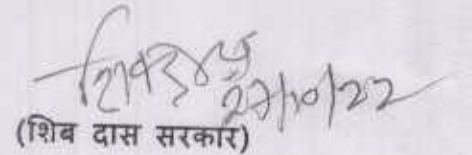 27/10/22
(शिब दास सरकार)